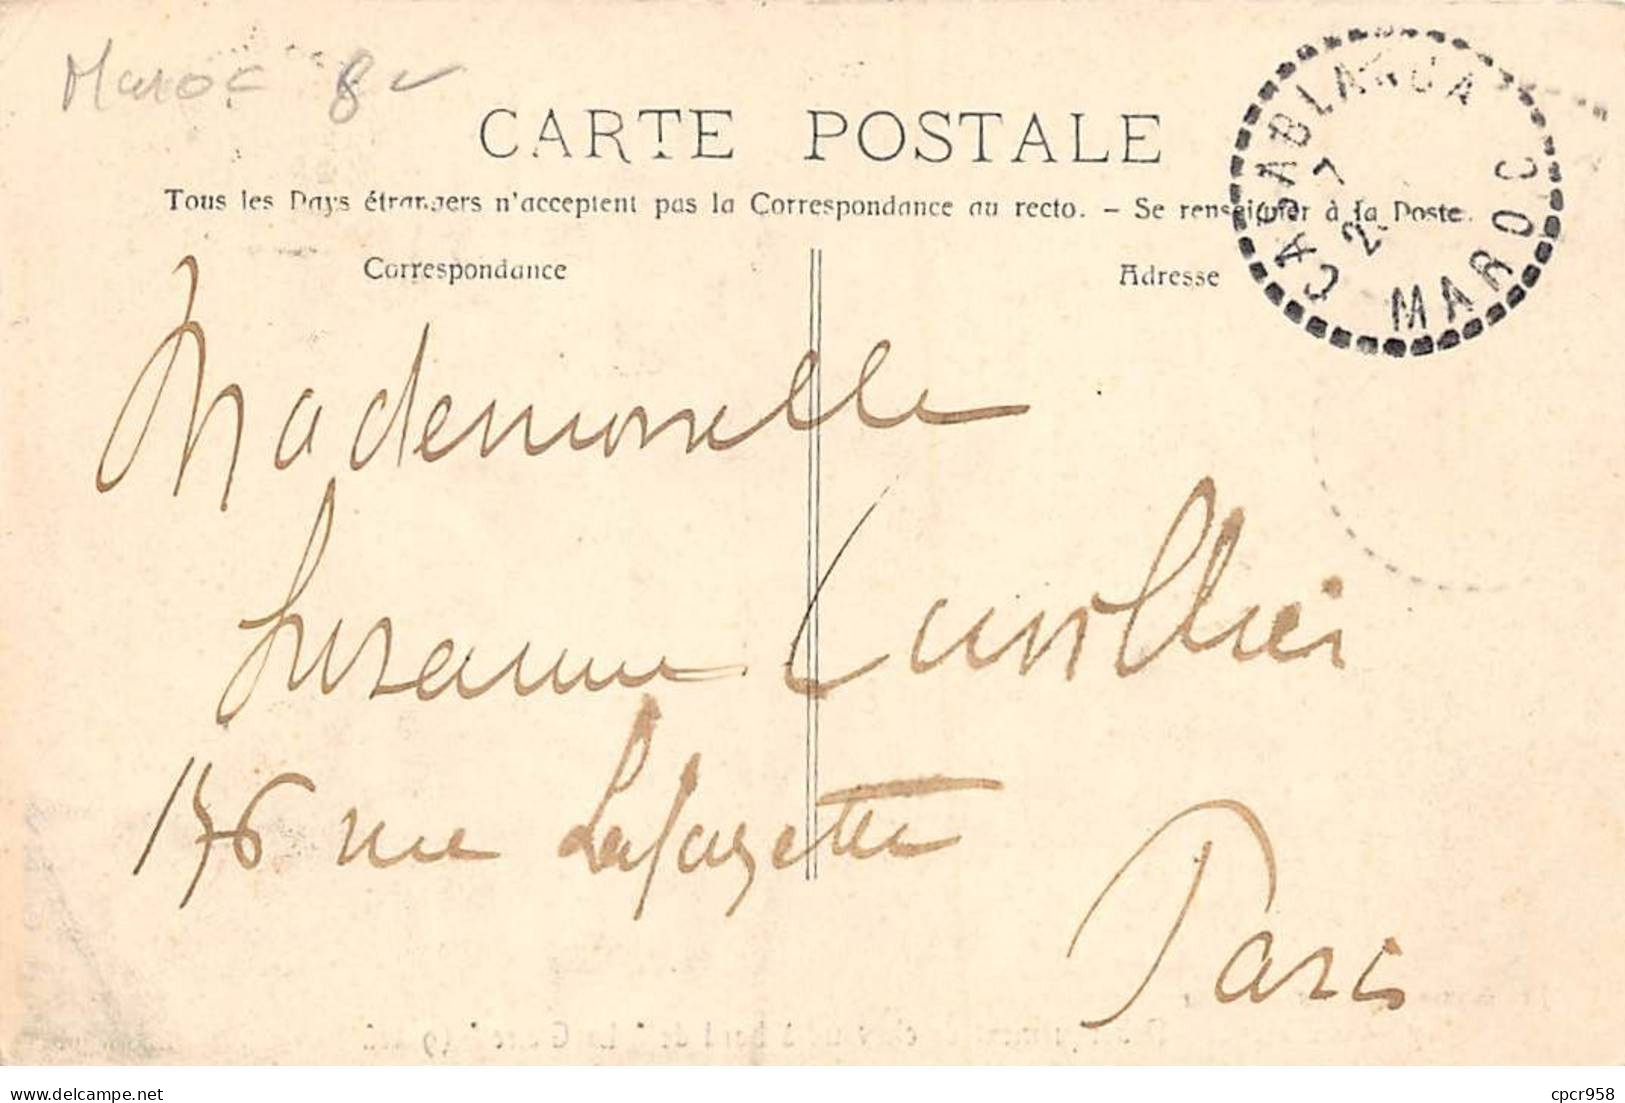 Maroc 8
CARTE POSTALE
Tous les Pays étrangers n'acceptent pas la Correspondance au recto. – Se renseigner à la Poste.
Correspondance
Adresse
CASABLANCA
MAROC
Mademoiselle
Suzanne Cuvillier
176 rue Lafayette
Paris
cpcr958